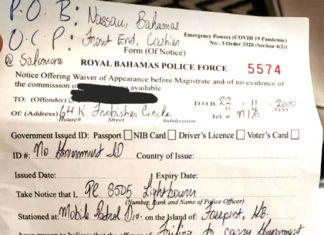 P.O.B: Nassau, Bahamas
O.C.P: Front End, Cashier
@ Solomons
Emergency Powers (COVID 19 Pandemic)
No: 3 Order 2020 (Section 4(2))
Form (Of Notice)
ROYAL BAHAMAS POLICE FORCE
5574
Notice Offering Waiver of Appearance before Magistrate and of no evidence of
the commission available
TO: (Offender) D.O.B. 22 11 2000
Of: (Address) #64 K Frobisher Circle Tel # N/A
House # Street Subdivision
Government Issued ID: Passport NIB Card Driver's Licence Voter's Card
ID#: No Government ID Country of Issue:
Issued Date: Expiry Date:
Take Notice that I, PC 8505 Lightbourn
(Number Rank and Name of Police Officer)
Stationed at Mobile Patrol Div. on the Island of Freeport,
Failing to carry Government